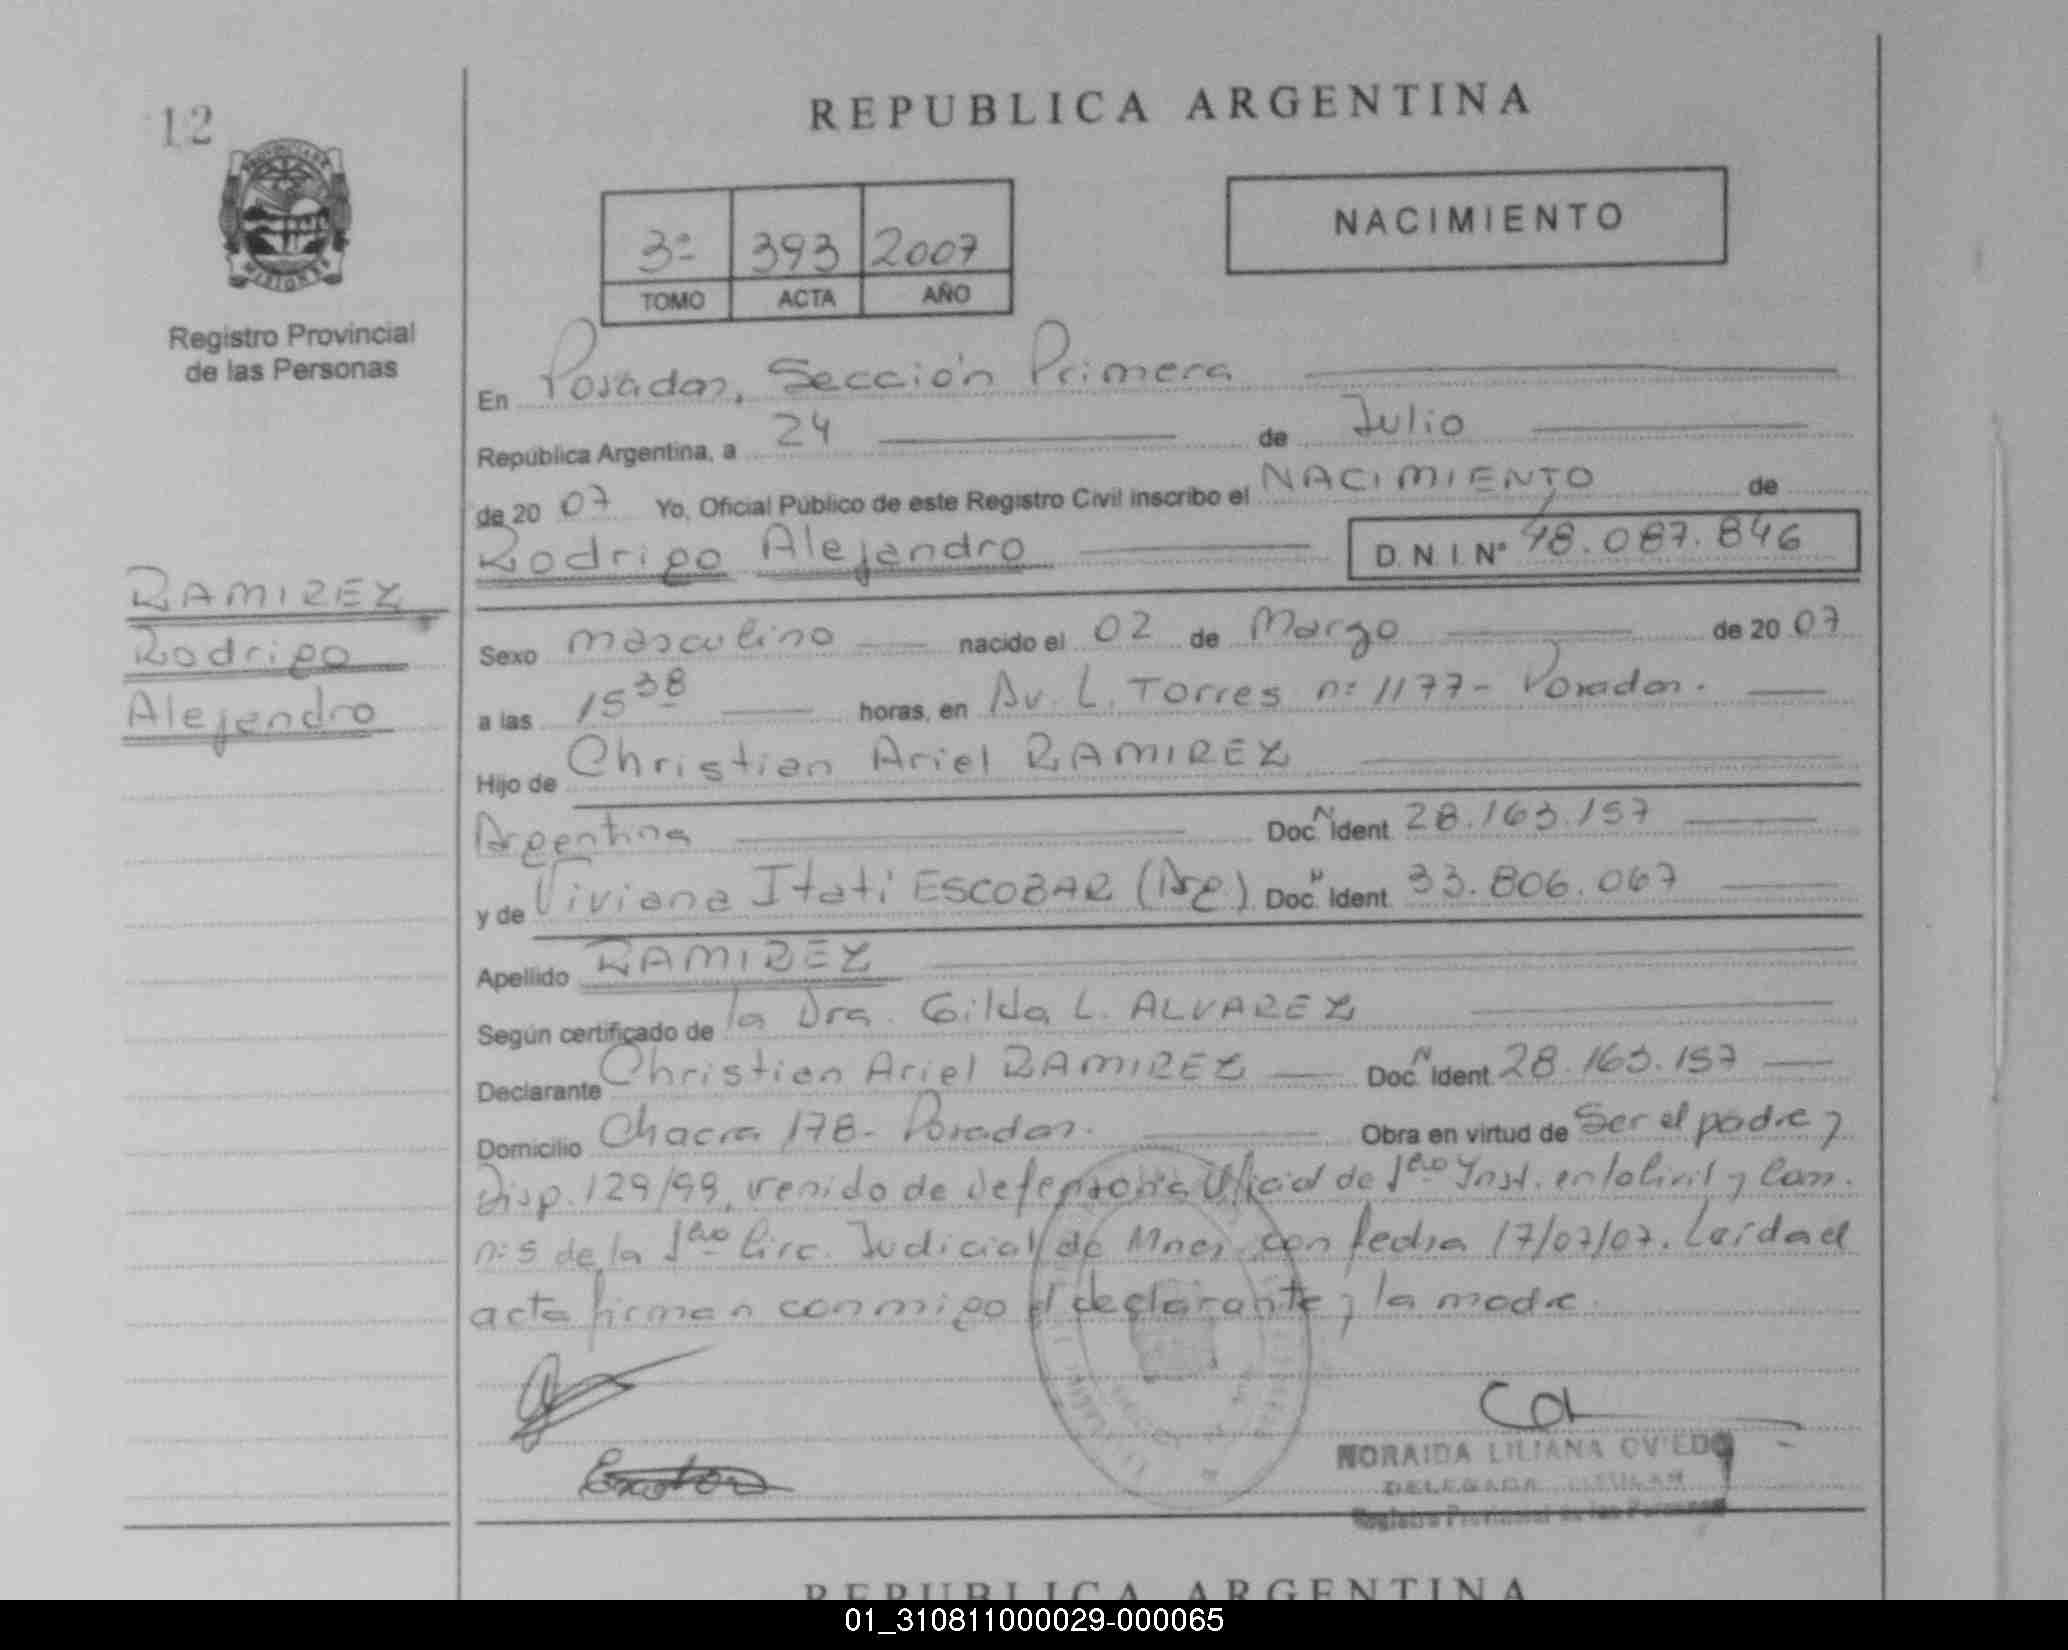 12
REPUBLICA ARGENTINA
PROVINCIA DE
MISIONES
Registro Provincial
de las Personas
3º 393 2007
TOMO ACTA AÑO
NACIMIENTO
En Posadas, Sección Primera
República Argentina, a 24 de Julio
de 20 07 Yo, Oficial Público de este Registro Civil inscribo el NACIMIENTO de
Rodrigo Alejandro D.N.I. Nº 48.087.846
RAMIREZ
Rodrigo
Alejandro
Sexo masculino nacido el 02 de Marzo de 20 07
a las 15 38 horas, en Av. L. Torres nº 1177 - Posadas.
Hijo de Christian Ariel RAMIREZ
Argentina Doc. N Ident. 28.163.157
y de Viviana Itatí ESCOBAR (Arg) Doc. N Ident. 33.806.067
Apellido RAMIREZ
Según certificado de la Dra. Gilda L. ALVAREZ
Declarante Christian Ariel RAMIREZ Doc. N Ident. 28.163.157
Domicilio Chacra 178 - Posadas. Obra en virtud de Ser el padre y
Disp. 129/99, venido de Defensoria Oficial de 1era Inst. en lo Civil y Com.
nº 5 de la 1era Circ. Judicial de Mnes. con fecha 17/07/07. Leída el
acta firman conmigo el declarante y la madre.
NORAIDA LILIANA OVIEDO
DELEGADA TITULAR
Registro Provincial de las Personas
REPUBLICA ARGENTINA
01_310811000029-000065